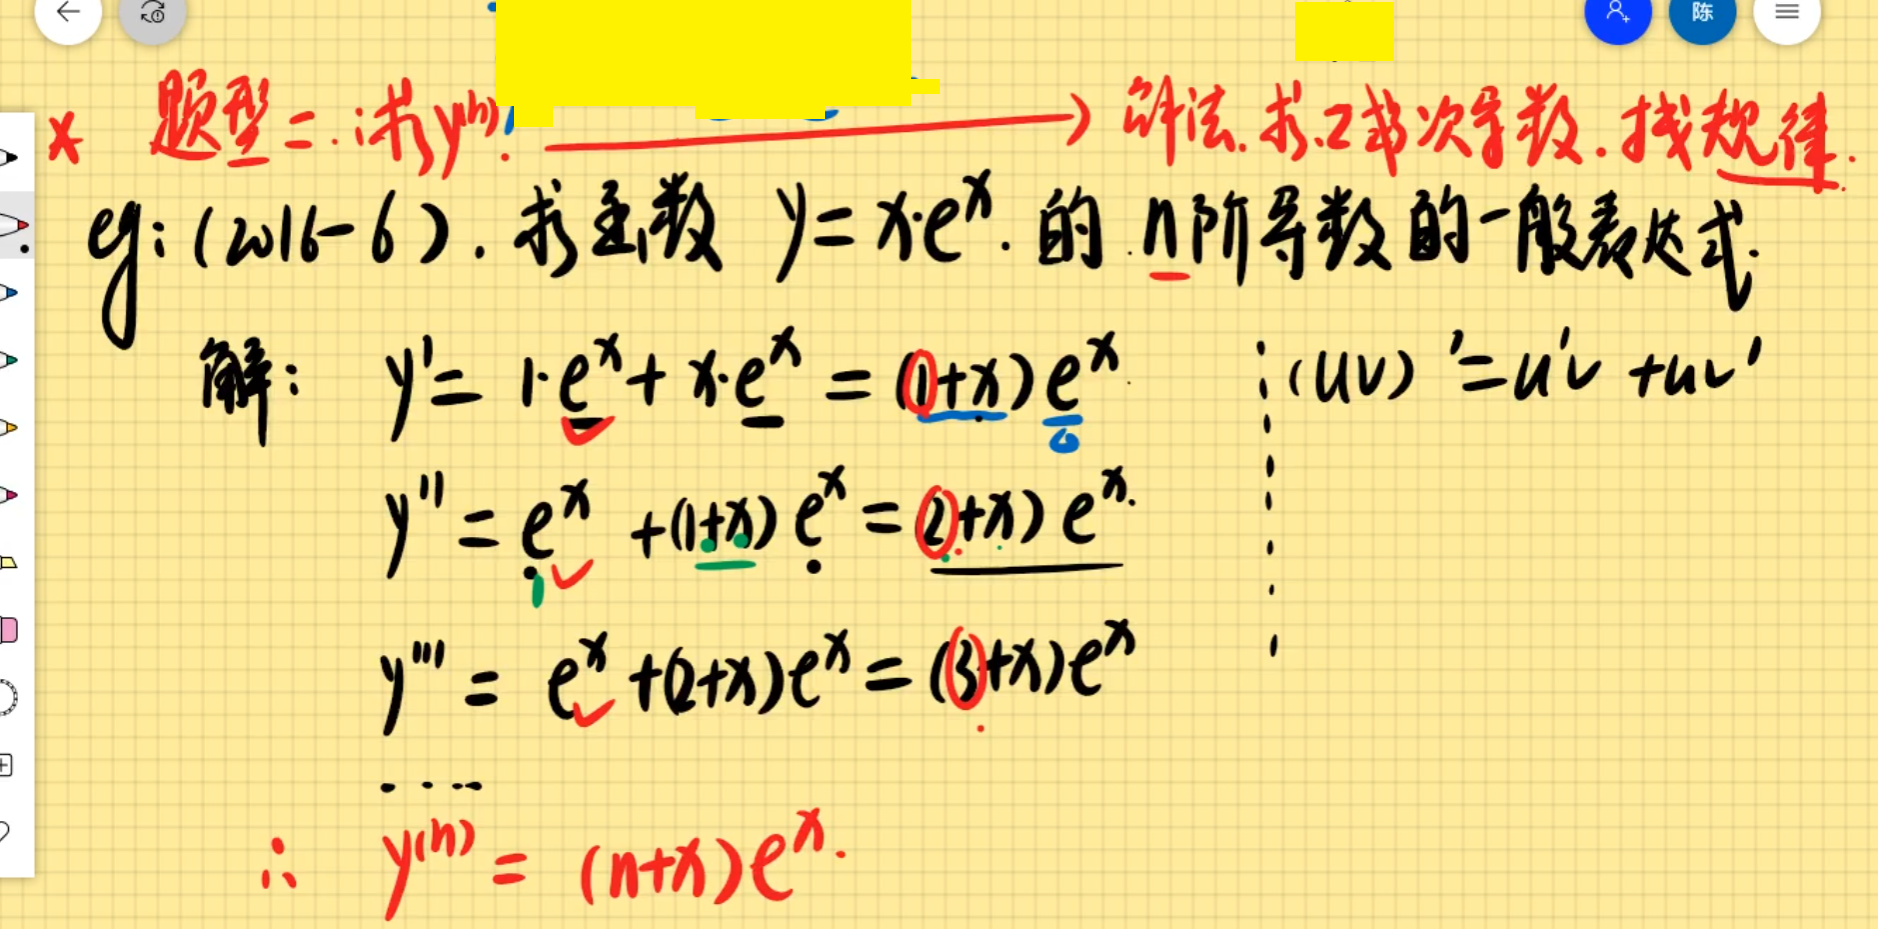 陈
* 题型二:求y⁽ⁿ⁾. → 算法.求.2或3次导数.找规律.
eg:(2016-6).求函数 y=x·eˣ.的n阶导数的一般表达式.
解: y'=1·eˣ+x·eˣ=(1+x)eˣ (uv)'=u'v+uv'
y''=eˣ+(1+x)eˣ=(2+x)eˣ.
y'''=eˣ+(2+x)eˣ=(3+x)eˣ
....
∴ y⁽ⁿ⁾=(n+x)eˣ.